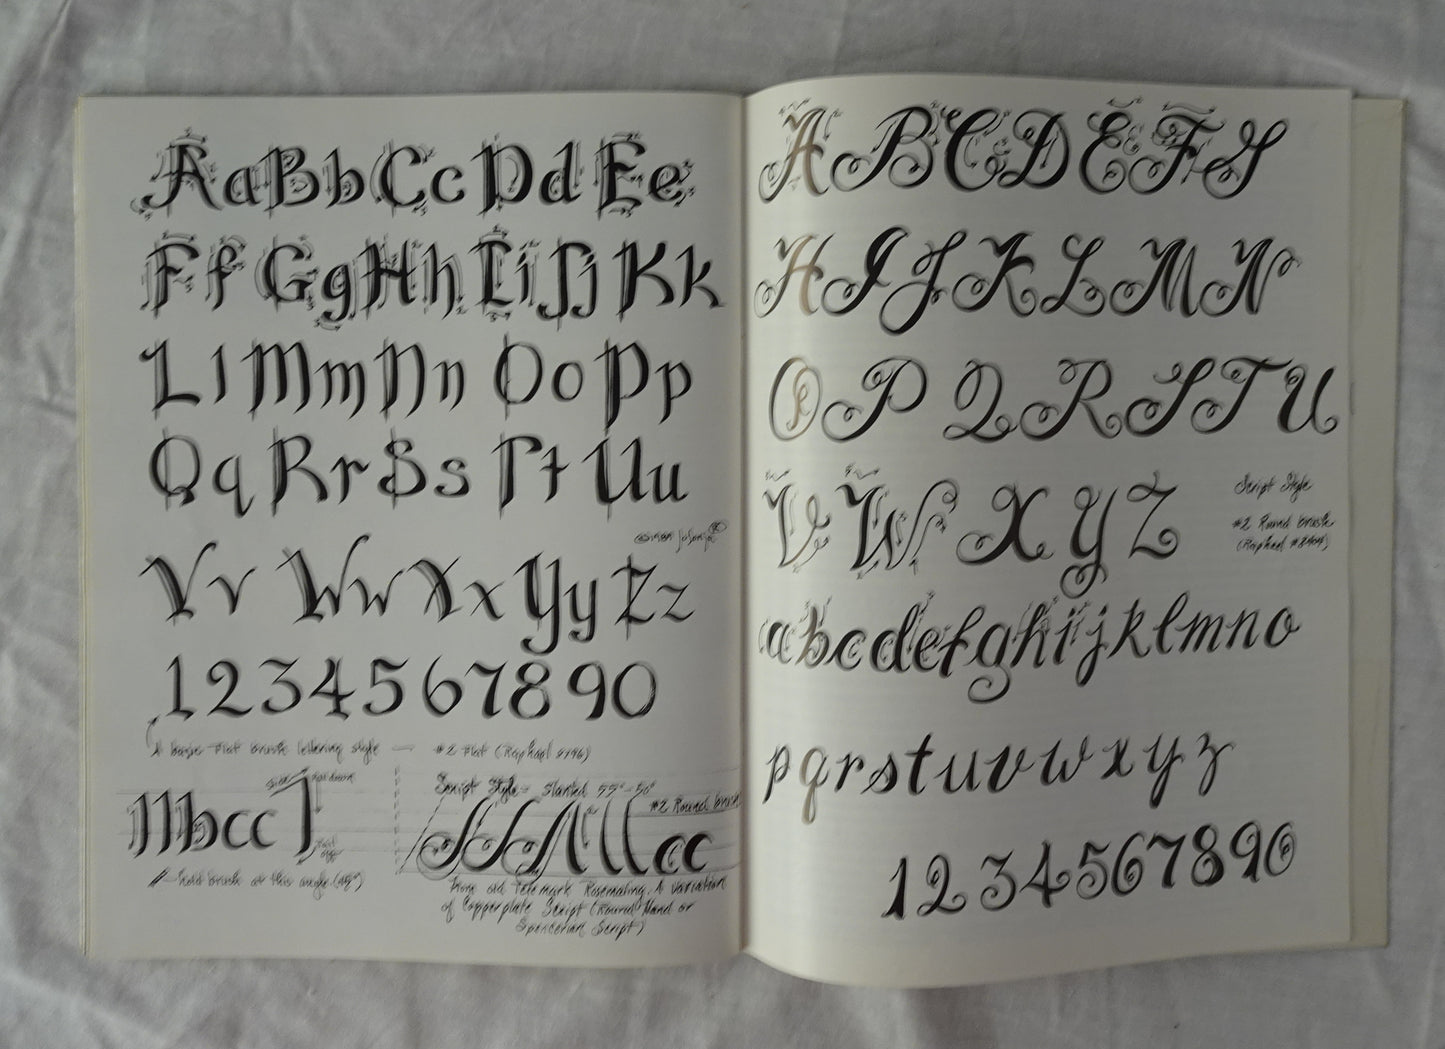 Aa Bb Cc Dd Ee
Ff Gg Hh Ii Jj Kk
Ll Mm Nn Oo Pp
Qq Rr Ss Tt Uu
Vv Ww Xx Yy Zz
1234567890
A basic flat brush lettering style — #2 Flat (Raphael
bcc
hold brush at this angle (45°)
Script Style - Slanted 55°-50°
#2 Round brush
cc
from old Telemark Rosemaling. A variation
of Copperplate Script (Round Hand or
Spencerian Script)
ABCDEFG
HIJKLMN
OPQRSTU
VWXYZ
Script Style
#2 Round brush
(Raphael #8404)
abcdefghijklmno
pqrstuvwxyz
1234567890